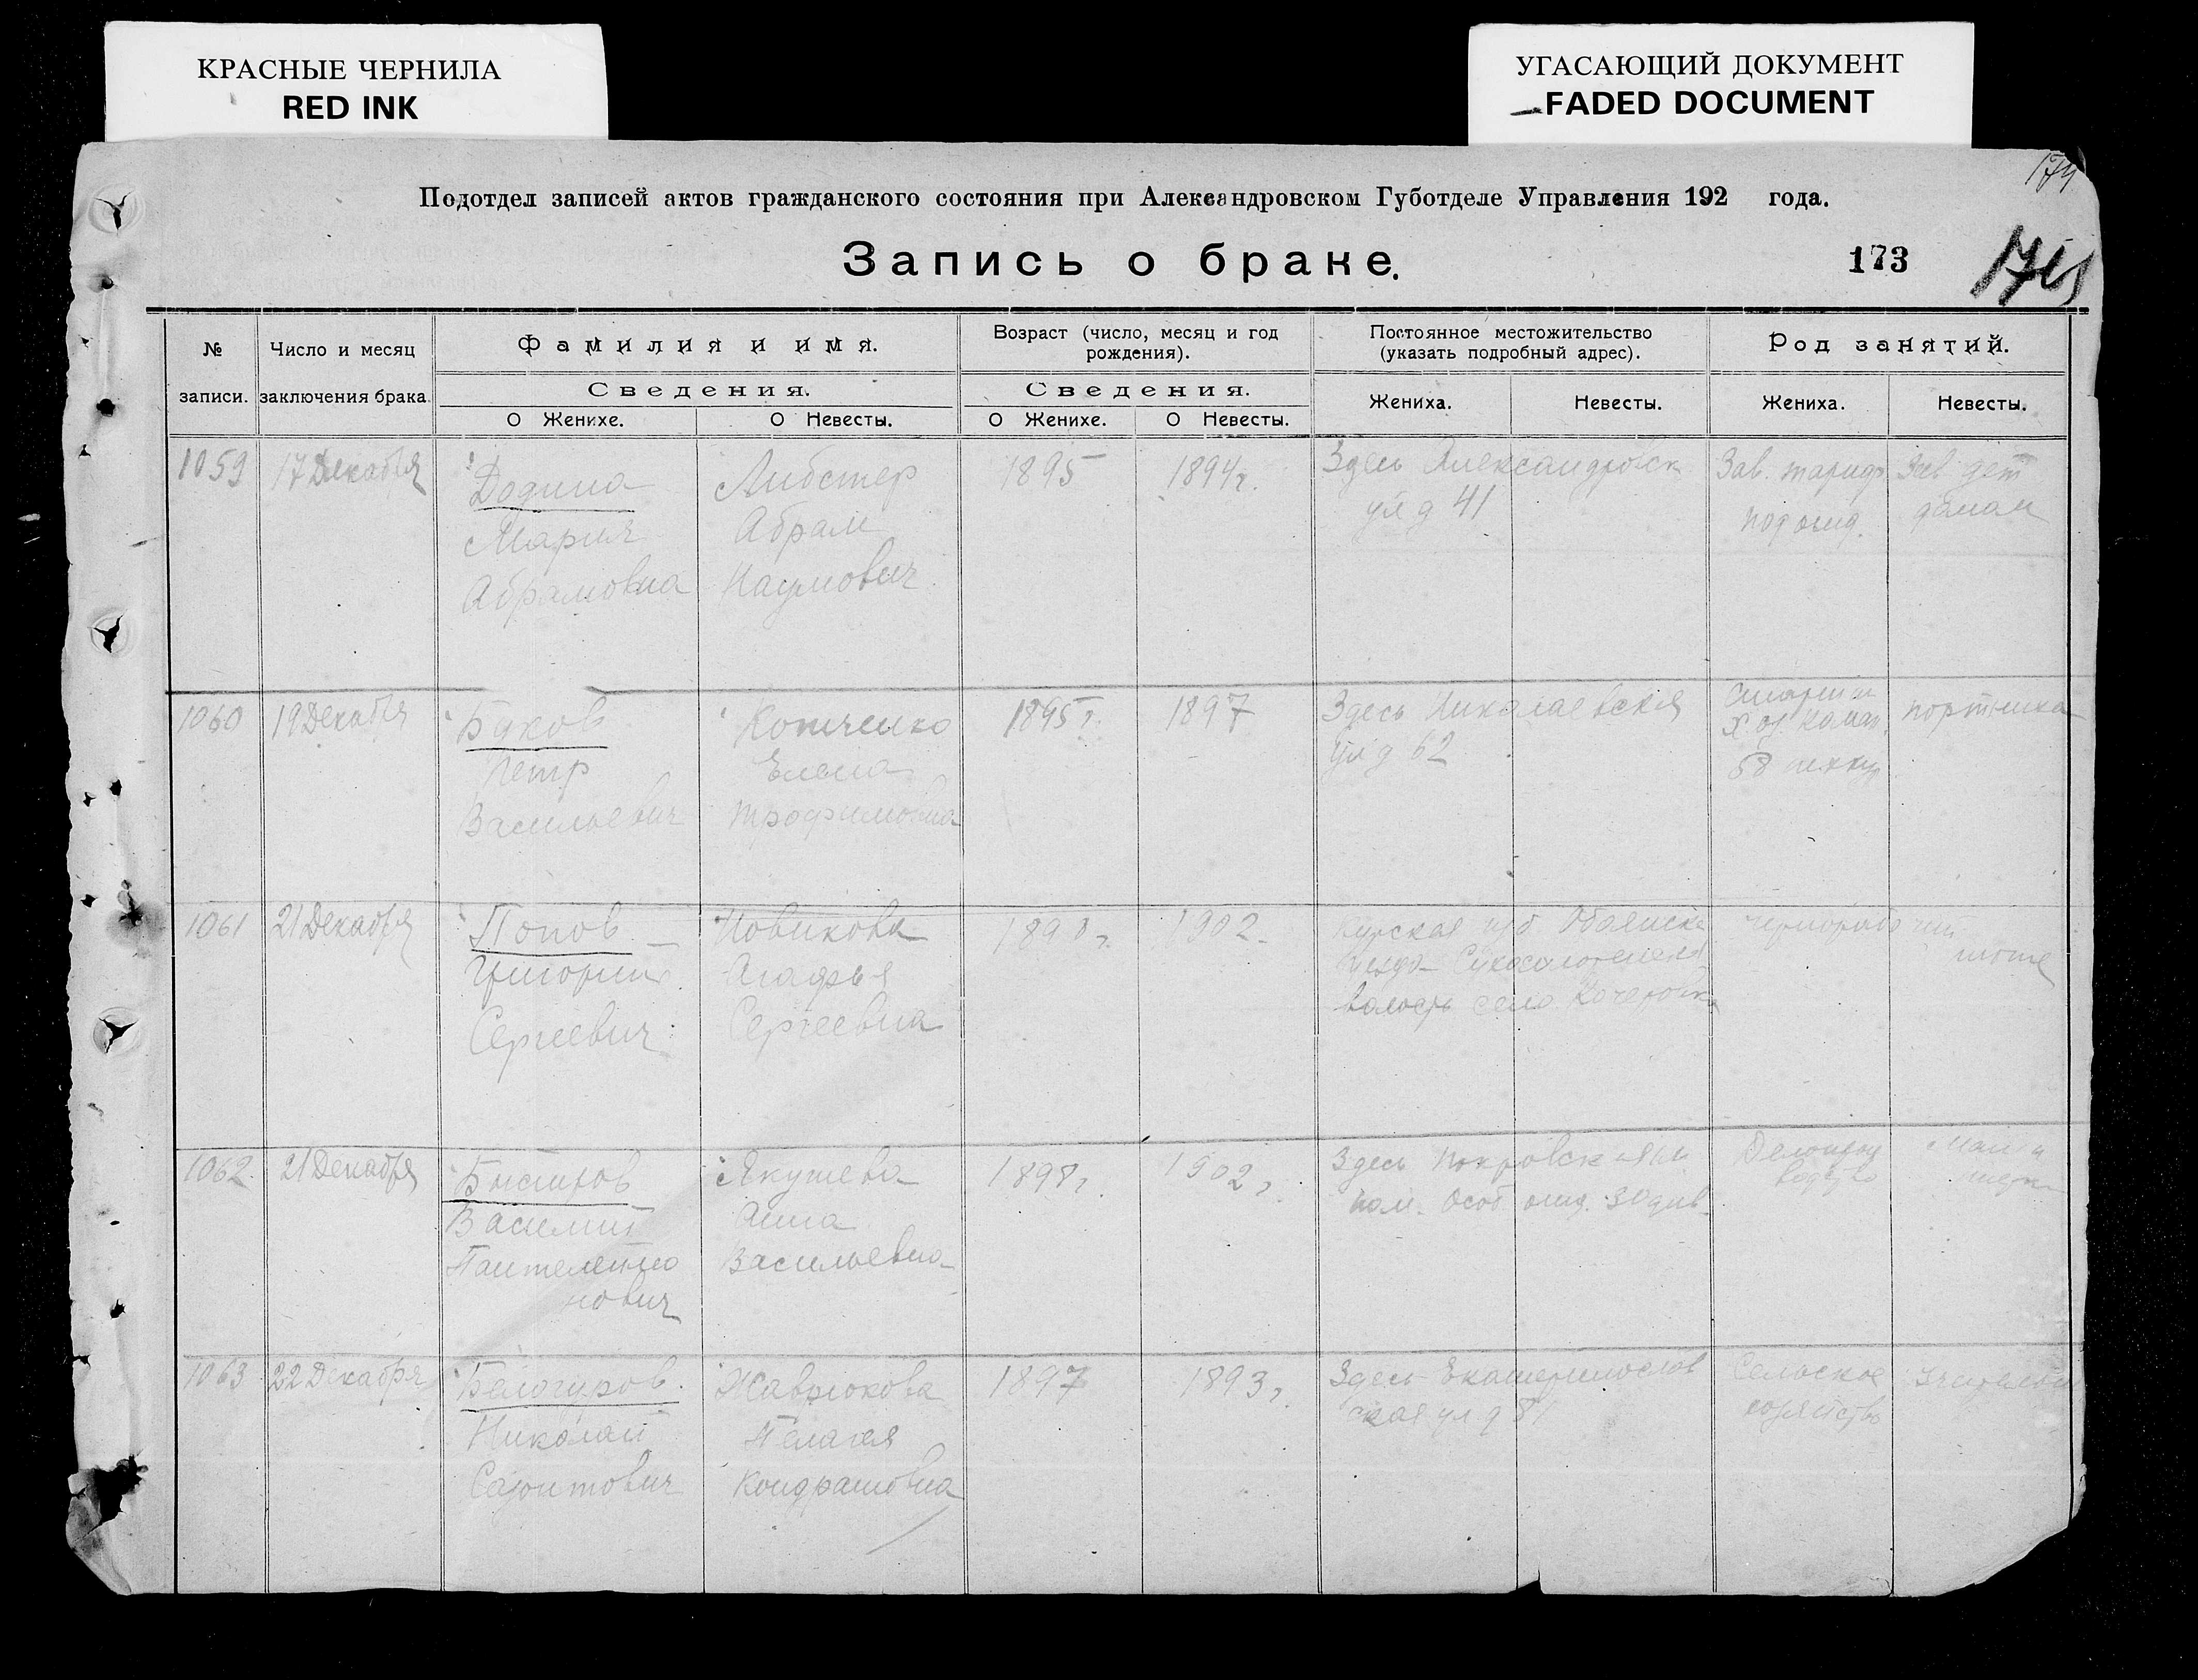 КРАСНЫЕ ЧЕРНИЛА
RED INK
УГАСАЮЩИЙ ДОКУМЕНТ
FADED DOCUMENT
174
Подотдел записей актов гражданского состояния при Александровском Губотделе Управления 192 года.
Запись о браке.
173
№ записи.
Число и месяц заключения брака.
Фамилия и имя.
Сведения.
О Женихе.
О Невесты.
Возраст (число, месяц и год рождения).
Сведения.
О Женихе.
О Невесты.
Постоянное местожительство (указать подробный адрес).
Жениха.
Невесты.
Род занятий.
Жениха.
Невесты.
1059
17 Декабря
Додина
Мария
Абрамовна
Либстер
Абрам
Наумович
1895
1894г.
Здесь Александровск
ул д 41
Зав. тариф
под отд.
Зав дет
домом
1060
19 Декабря
Быков
Петр
Васильевич
Котченко
Елена
Трофимовна
1895 г.
1897
Здесь Николаевская
ул д 62
портниха
1061
21 Декабря
Попов
Григорий
Сергеевич
Новикова
Агафья
Сергеевна
1902
Курская губ. Обоянск
уезда
волость село
чернорабочий
тоже
1062.
21 Декабря
Быстров
Василий
Пантелеймо
нович
Якушева
Анна
Васильевна
1898 г.
1902 г.
Здесь Покровск
пом. Особ отд. 30 див.
Делопро
водство
1063
22 Декабря
Белогуров
Николай
Жаврюкова
Пелагея
Кондратовна
1897
1893 г.
Здесь Екатеринослав
ская ул д 81
Сельское
хозяйство